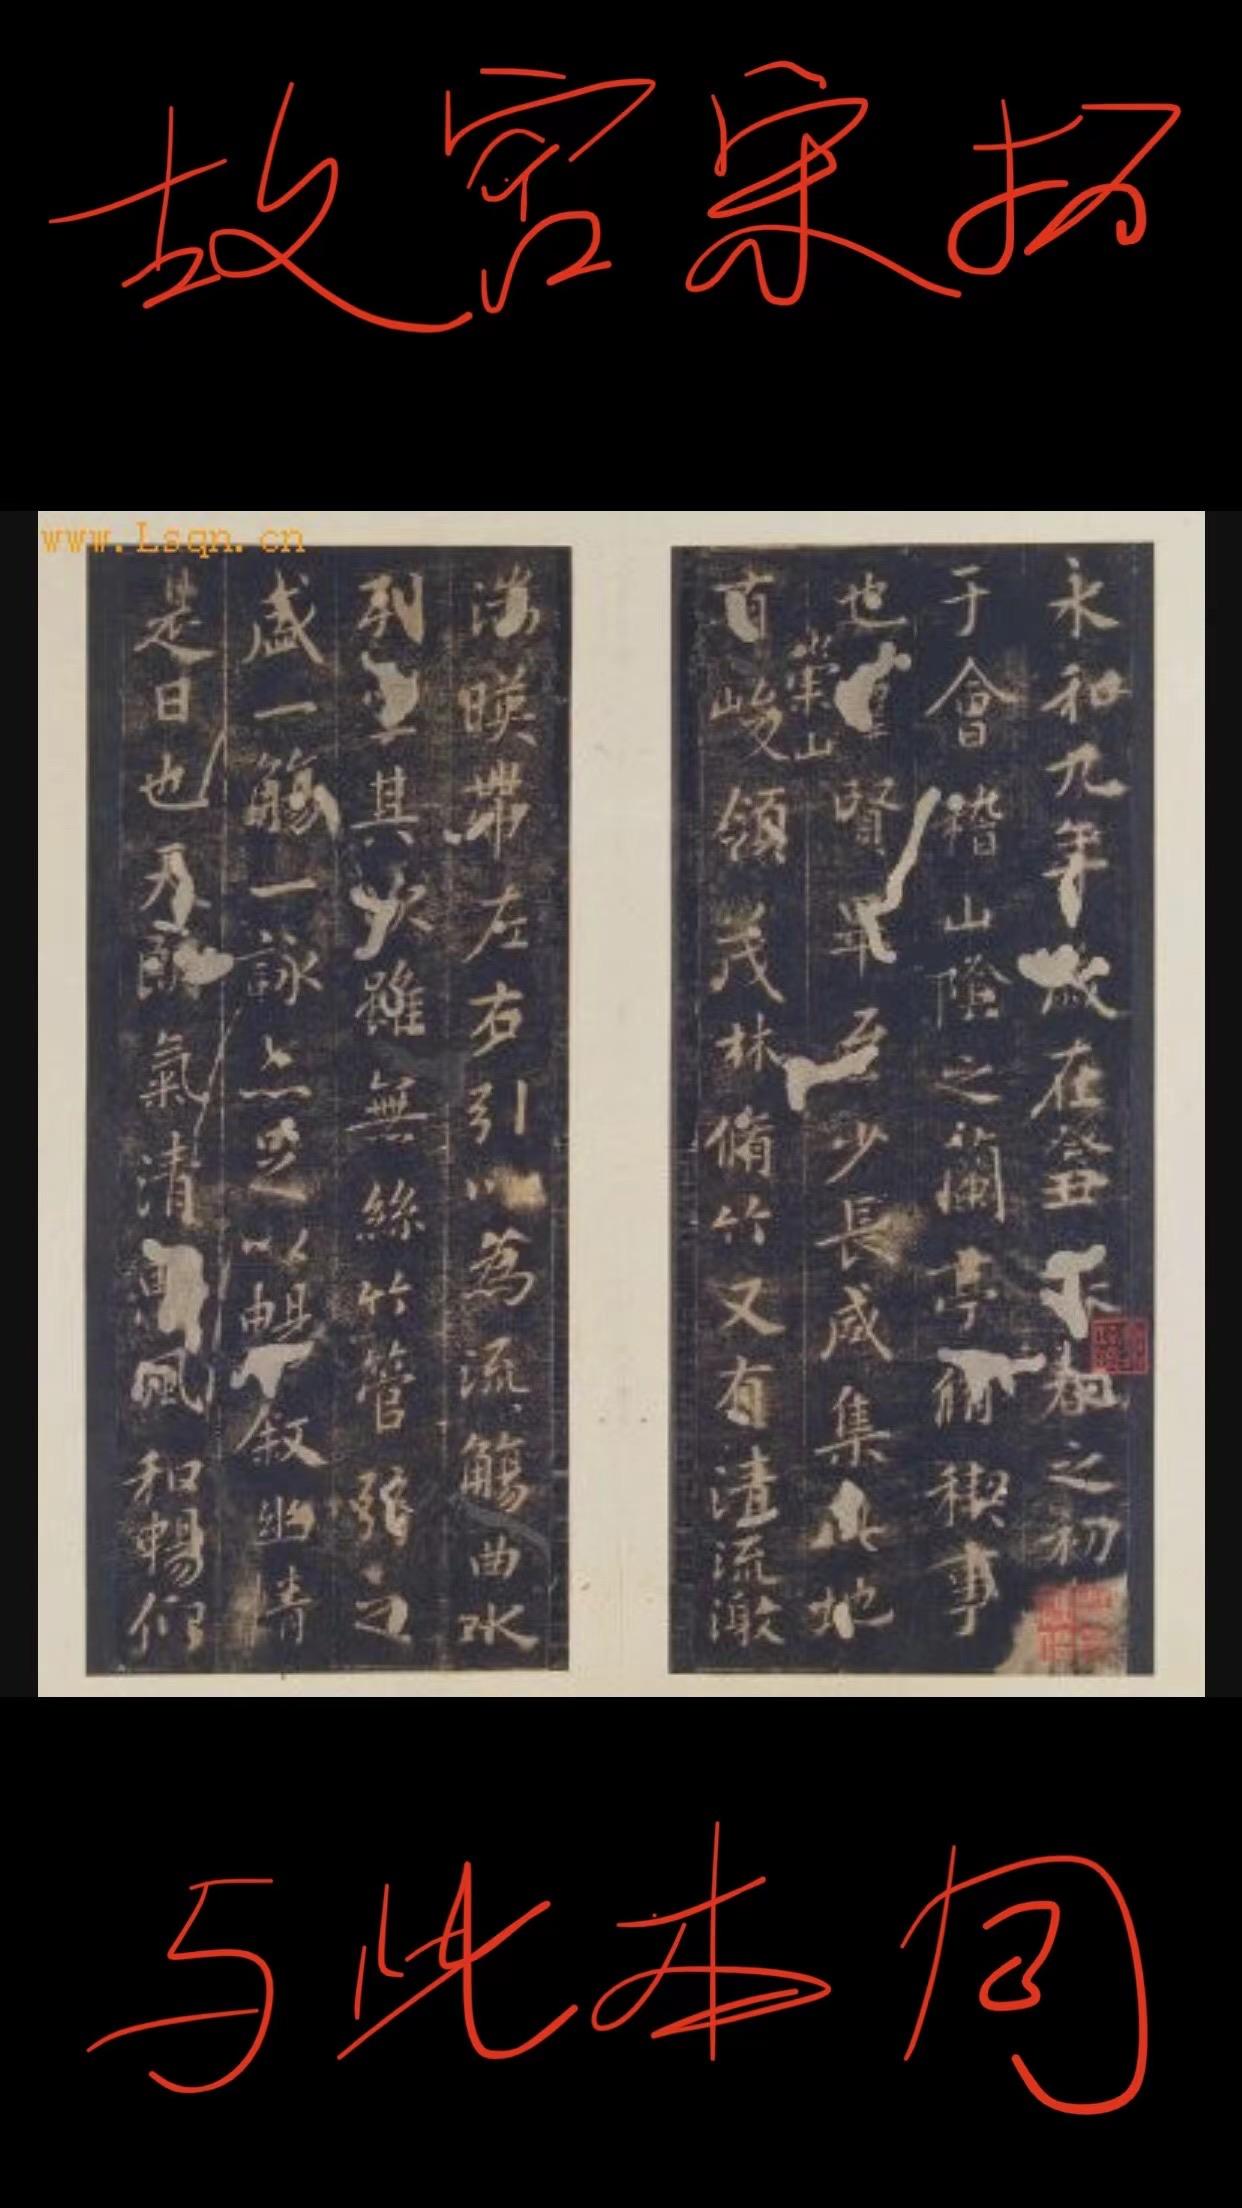 故宫宋拓
www.Lsqn.cn
永和九年歲在癸丑暮春之初
于會稽山陰之蘭亭脩稧事
也羣賢畢至少長咸集此地
崇山
有峻領茂林脩竹又有清流激
湍暎帶左右引以為流觴曲水
列坐其次雖無絲竹管弦之
盛一觴一詠亦足以暢叙幽情
是日也天朗氣清惠風和暢仰
与此本同